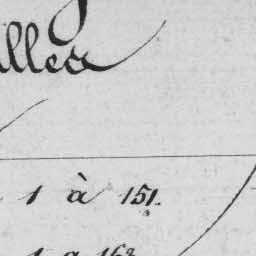 illes
1 à 151.
1 a 163